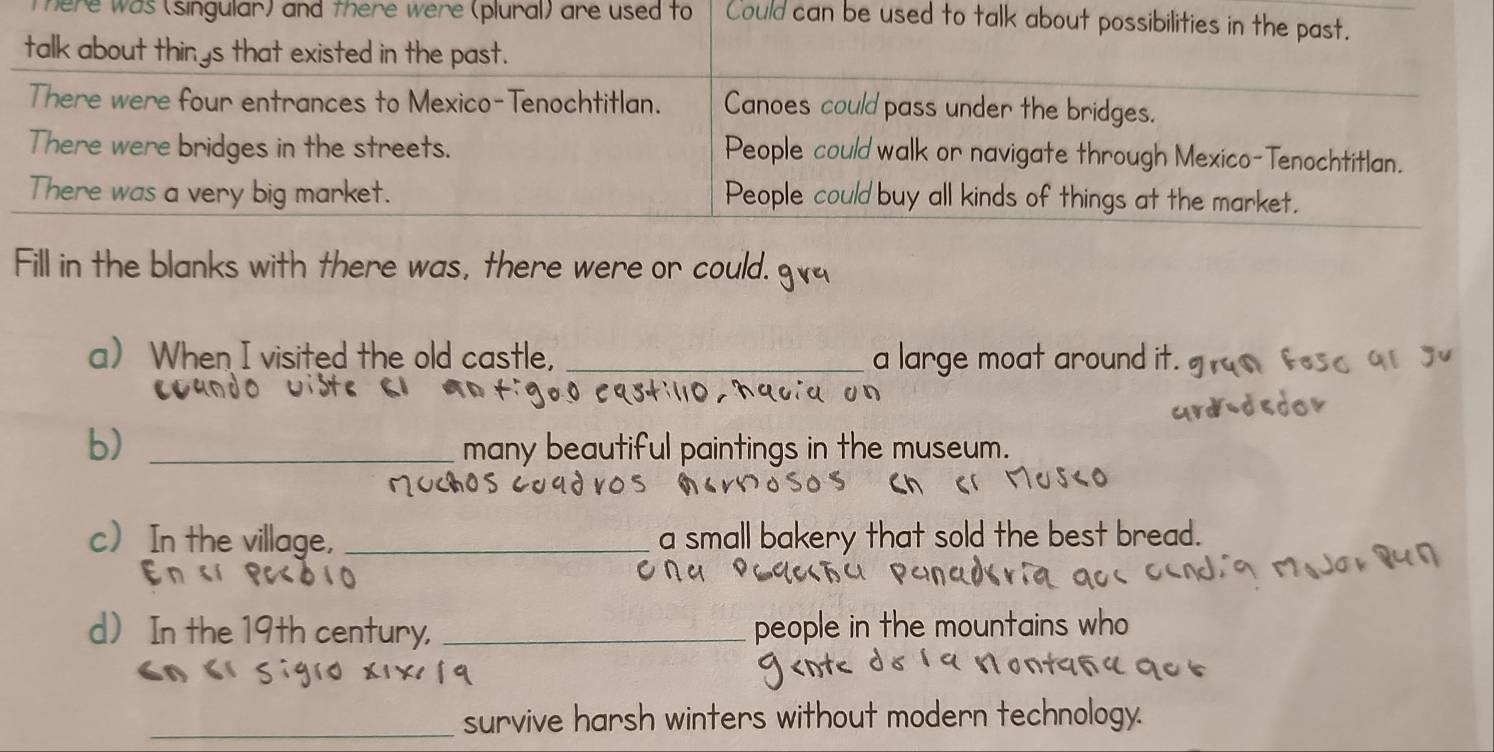 There was (singular) and there were (plural) are used to
talk about things that existed in the past.
Could can be used to talk about possibilities in the past.
There were four entrances to Mexico-Tenochtitlan.
There were bridges in the streets.
There was a very big market.
Canoes could pass under the bridges.
People could walk or navigate through Mexico-Tenochtitlan.
People could buy all kinds of things at the market.
Fill in the blanks with there was, there were or could. gra
a) When I visited the old castle, ____ a large moat around it. gran foso al su
cuando viste el antigoo castillo, hacia un
ardededor
b) ____ many beautiful paintings in the museum.
muchos cuadros hermosos en el museo
c) In the village, ____ a small bakery that sold the best bread.
En el pueblo una panaderia que vendia pun
d) In the 19th century, ____ people in the mountains who
en el siglo xix gente de la montaña que
____ survive harsh winters without modern technology.